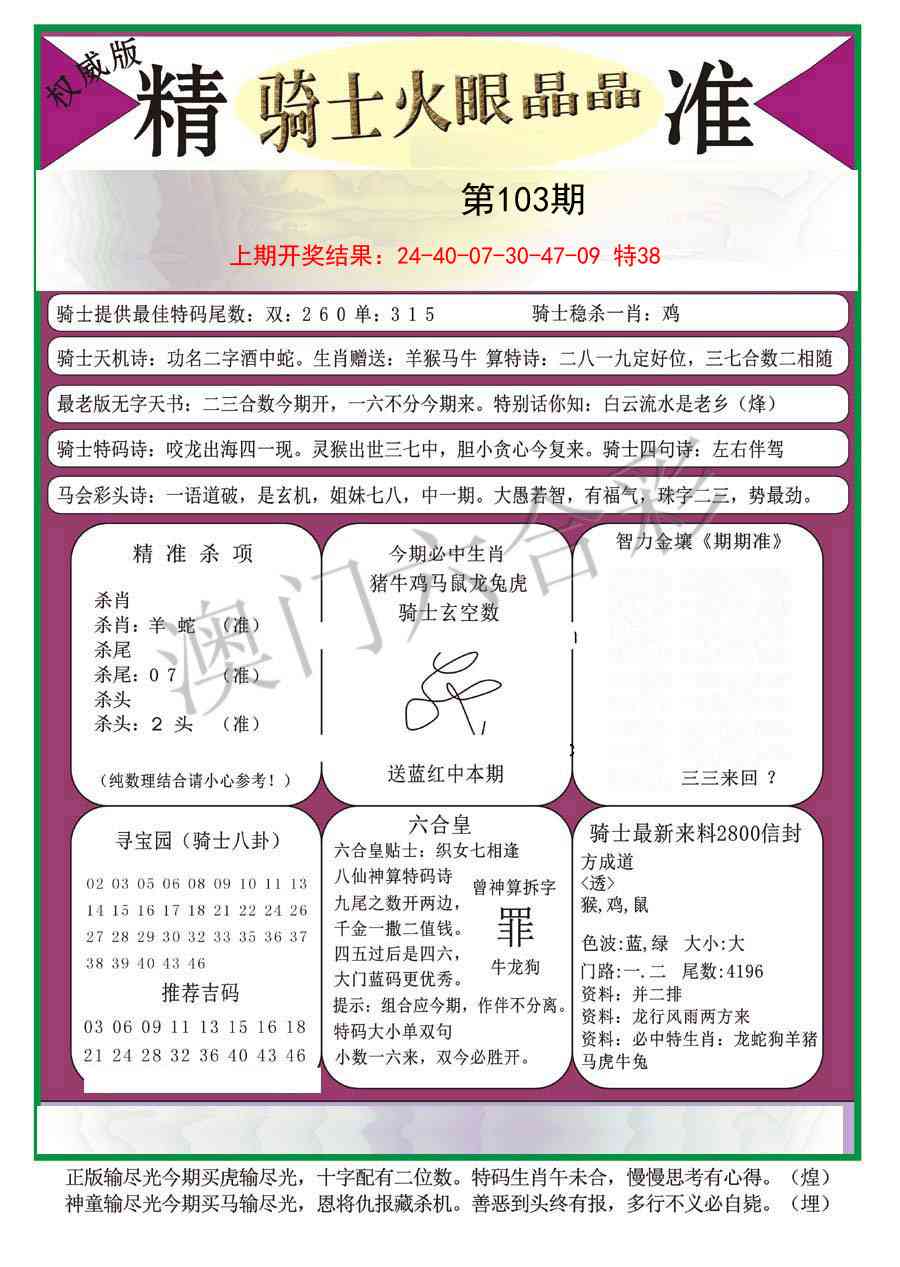 权威版
精 骑士火眼晶晶 准
第103期
上期开奖结果：24-40-07-30-47-09 特38
骑士提供最佳特码尾数：双：2 6 0 单：3 1 5 骑士稳杀一肖：鸡
骑士天机诗：功名二字酒中蛇。生肖赠送：羊猴马牛 算特诗：二八一九定好位，三七合数二相随
最老版无字天书：二三合数今期开，一六不分今期来。特别话你知：白云流水是老乡（烽）
骑士特码诗：咬龙出海四一现。灵猴出世三七中，胆小贪心今复来。骑士四句诗：左右伴驾
马会彩头诗：一语道破，是玄机，姐妹七八，中一期。大愚若智，有福气，珠字二三，势最劲。
澳门六合彩
精 准 杀 项
杀肖
杀肖：羊 蛇 （准）
杀尾
杀尾：0 7 （准）
杀头
杀头：2 头 （准）
（纯数理结合请小心参考！）
今期必中生肖
猪牛鸡马鼠龙兔虎
骑士玄空数
送蓝红中本期
智力金壤《期期准》
三三来回 ？
寻宝园（骑士八卦）
02 03 05 06 08 09 10 11 13
14 15 16 17 18 21 22 24 26
27 28 29 30 32 33 35 36 37
38 39 40 43 46
推荐吉码
03 06 09 11 13 15 16 18
21 24 28 32 36 40 43 46
六合皇
六合皇贴士：织女七相逢
八仙神算特码诗
九尾之数开两边，
千金一撒二值钱。
四五过后是四六，
大门蓝码更优秀。
曾神算拆字
罪
牛龙狗
提示：组合应今期，作伴不分离。
特码大小单双句
小数一六来，双今必胜开。
骑士最新来料2800信封
方成道
<透>
猴,鸡,鼠
色波:蓝,绿 大小:大
门路:一.二 尾数:4196
资料：并二排
资料：龙行风雨两方来
资料：必中特生肖：龙蛇狗羊猪
马虎牛兔
正版输尽光今期买虎输尽光，十字配有二位数。特码生肖午未合，慢慢思考有心得。（煌）
神童输尽光今期买马输尽光，恩将仇报藏杀机。善恶到头终有报，多行不义必自毙。（埋）